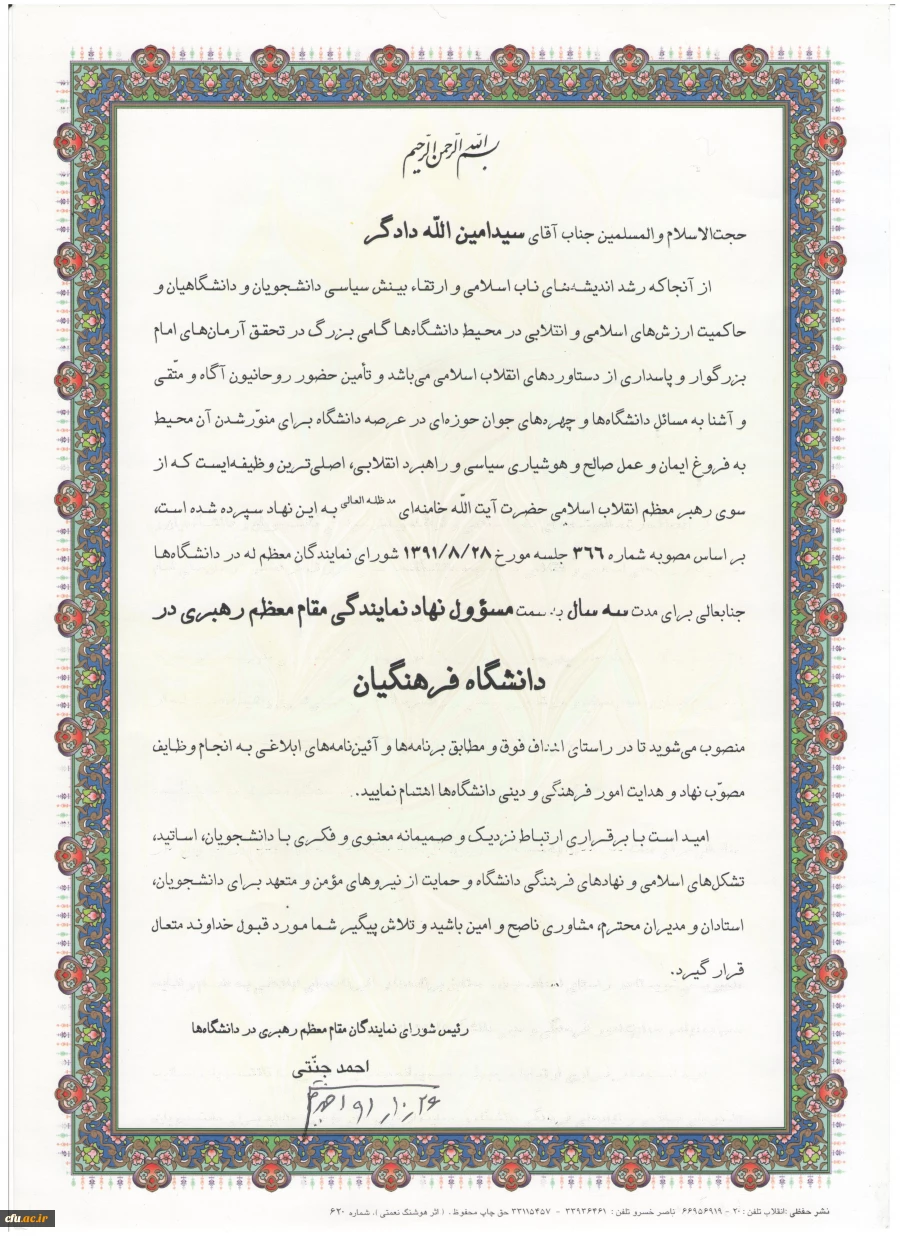 بسم الله الرحمن الرحیم
حجت‌الاسلام والمسلمین جناب آقای سیدامین اللّه دادگر
از آنجاکه رشد اندیشه‌های ناب اسلامی و ارتقاء بینش سیاسی دانشجویان و دانشگاهیان و
حاکمیت ارزش‌های اسلامی و انقلابی در محیط دانشگاه‌ها گامی بزرگ در تحقق آرمان‌های امام
بزرگوار و پاسداری از دستاوردهای انقلاب اسلامی می‌باشد و تأمین حضور روحانیون آگاه و متّقی
و آشنا به مسائل دانشگاه‌ها و چهره‌های جوان حوزه‌ای در عرصه دانشگاه برای منوّر شدن آن محیط
به فروغ ایمان و عمل صالح و هوشیاری سیاسی و راهبرد انقلابی، اصلی‌ترین وظیفه‌ایست که از
سوی رهبر معظم انقلاب اسلامی حضرت آیت اللّه خامنه‌ای مدظله العالی به این نهاد سپرده شده است،
بر اساس مصوبه شماره ۳۶۶ جلسه مورخ ۱۳۹۱/۸/۲۸ شورای نمایندگان معظم له در دانشگاه‌ها
جنابعالی برای مدت سه سال به سمت مسؤول نهاد نمایندگی مقام معظم رهبری در
دانشگاه فرهنگیان
منصوب می‌شوید تا در راستای اهداف فوق و مطابق برنامه‌ها و آئین‌نامه‌های ابلاغی به انجام وظایف
مصوّب نهاد و هدایت امور فرهنگی و دینی دانشگاه‌ها اهتمام نمایید.
امید است با برقراری ارتباط نزدیک و صمیمانه معنوی و فکری با دانشجویان، اساتید،
تشکل‌های اسلامی و نهادهای فرهنگی دانشگاه و حمایت از نیروهای مؤمن و متعهد برای دانشجویان،
استادان و مدیران محترم، مشاوری ناصح و امین باشید و تلاش پیگیر شما مورد قبول خداوند متعال
قرار گیرد.
رئیس شورای نمایندگان مقام معظم رهبری در دانشگاه‌ها
احمد جنّتی
۹۱/۱۰/۲۶
نشر حفظی: انقلاب تلفن: ۲۰ - ۶۶۹۵۶۹۱۹ ناصر خسرو تلفن: ۳۳۹۳۶۴۶۱ - ۳۳۱۱۵۴۵۷ حق چاپ محفوظ. (اثر هوشنگ نعمتی)، شماره ۶۲۰
cfu.ac.ir